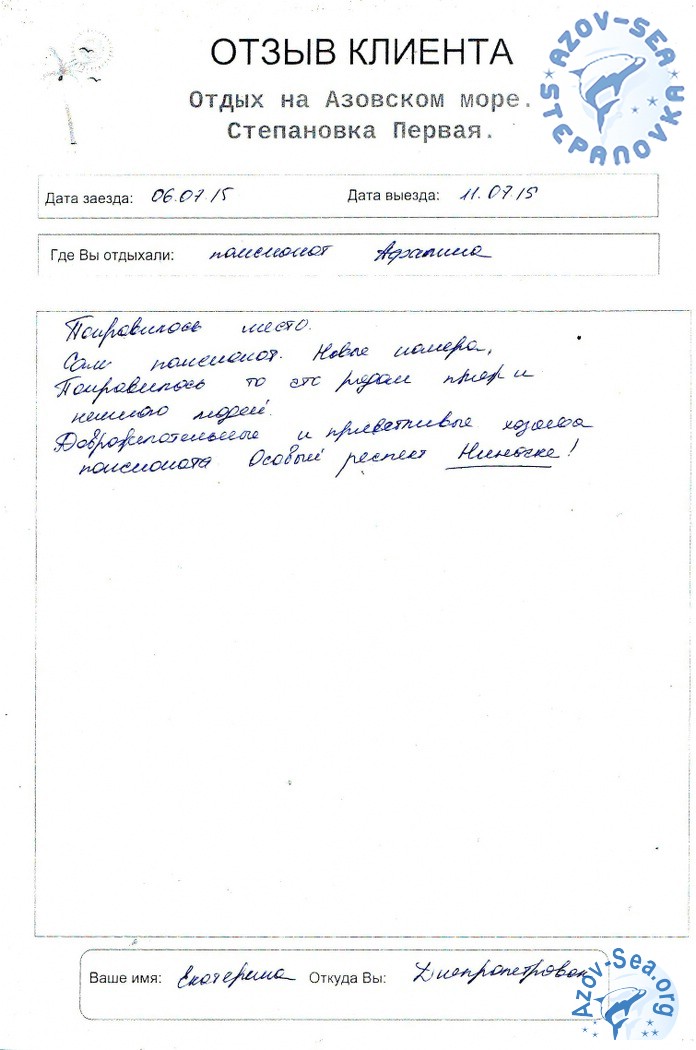 ОТЗЫВ КЛИЕНТА
AZOV-SEA
STEPANOVKA
Отдых на Азовском море.
Степановка Первая.
Дата заезда: 06.07.15 Дата выезда: 11.07.15
Где Вы отдыхали: пансионат Афалина
Понравилось место.
Сам пансионат. Новые номера,
Понравилось то что рядом море и
немного людей.
Доброжелательные и приветливые хозяева
пансионата Особый респект Ниночке!
Ваше имя: Екатерина Откуда Вы: Днепропетровск
Azov-Sea.org